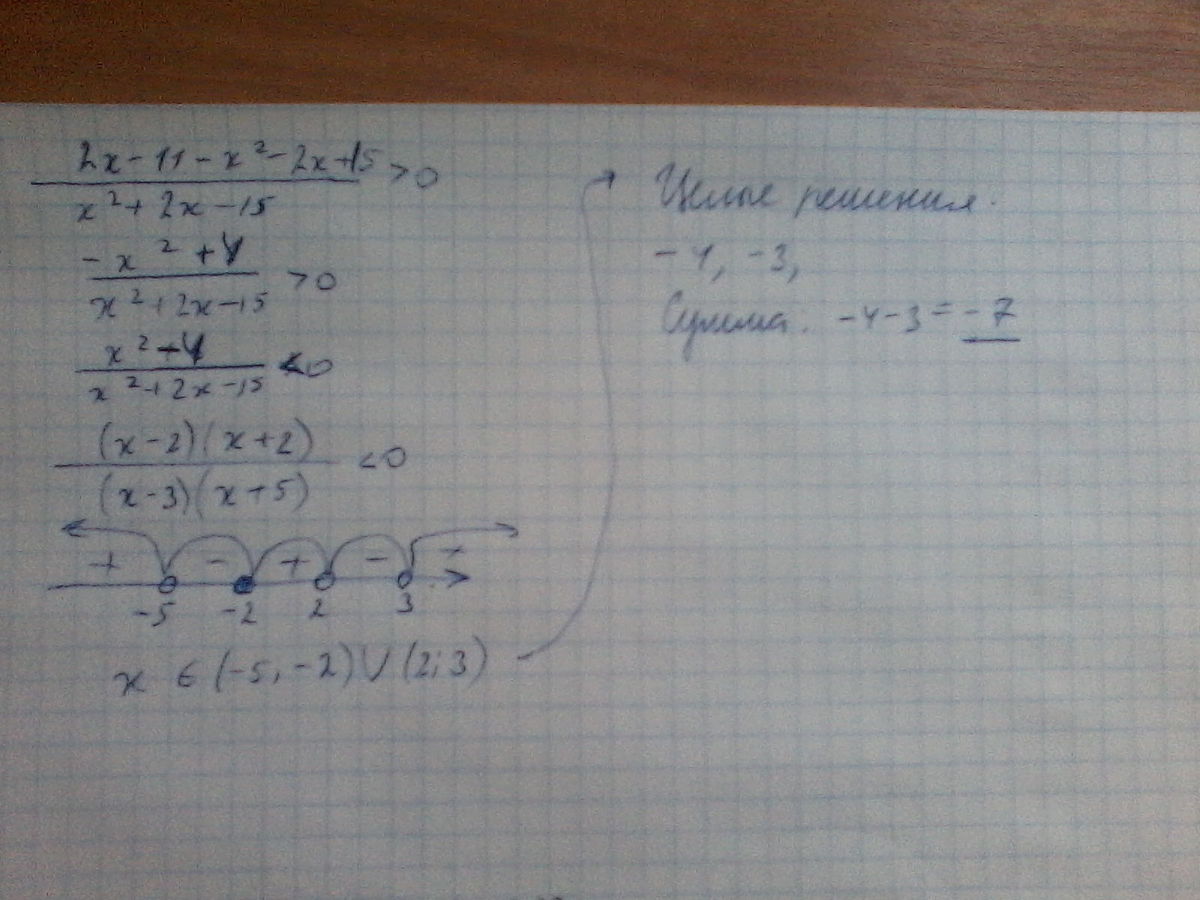 2x - 11 - x² - 2x + 15 > 0
x² + 2x - 15
- x² + 4 > 0
x² + 2x - 15
x² - 4 < 0
x² + 2x - 15
(x - 2)(x + 2) < 0
(x - 3)(x + 5)
+ - + - +
-5 -2 2 3
x ∈ (-5, -2) ∪ (2; 3)
Целые решения.
-4, -3,
Сумма: -4-3 = -7